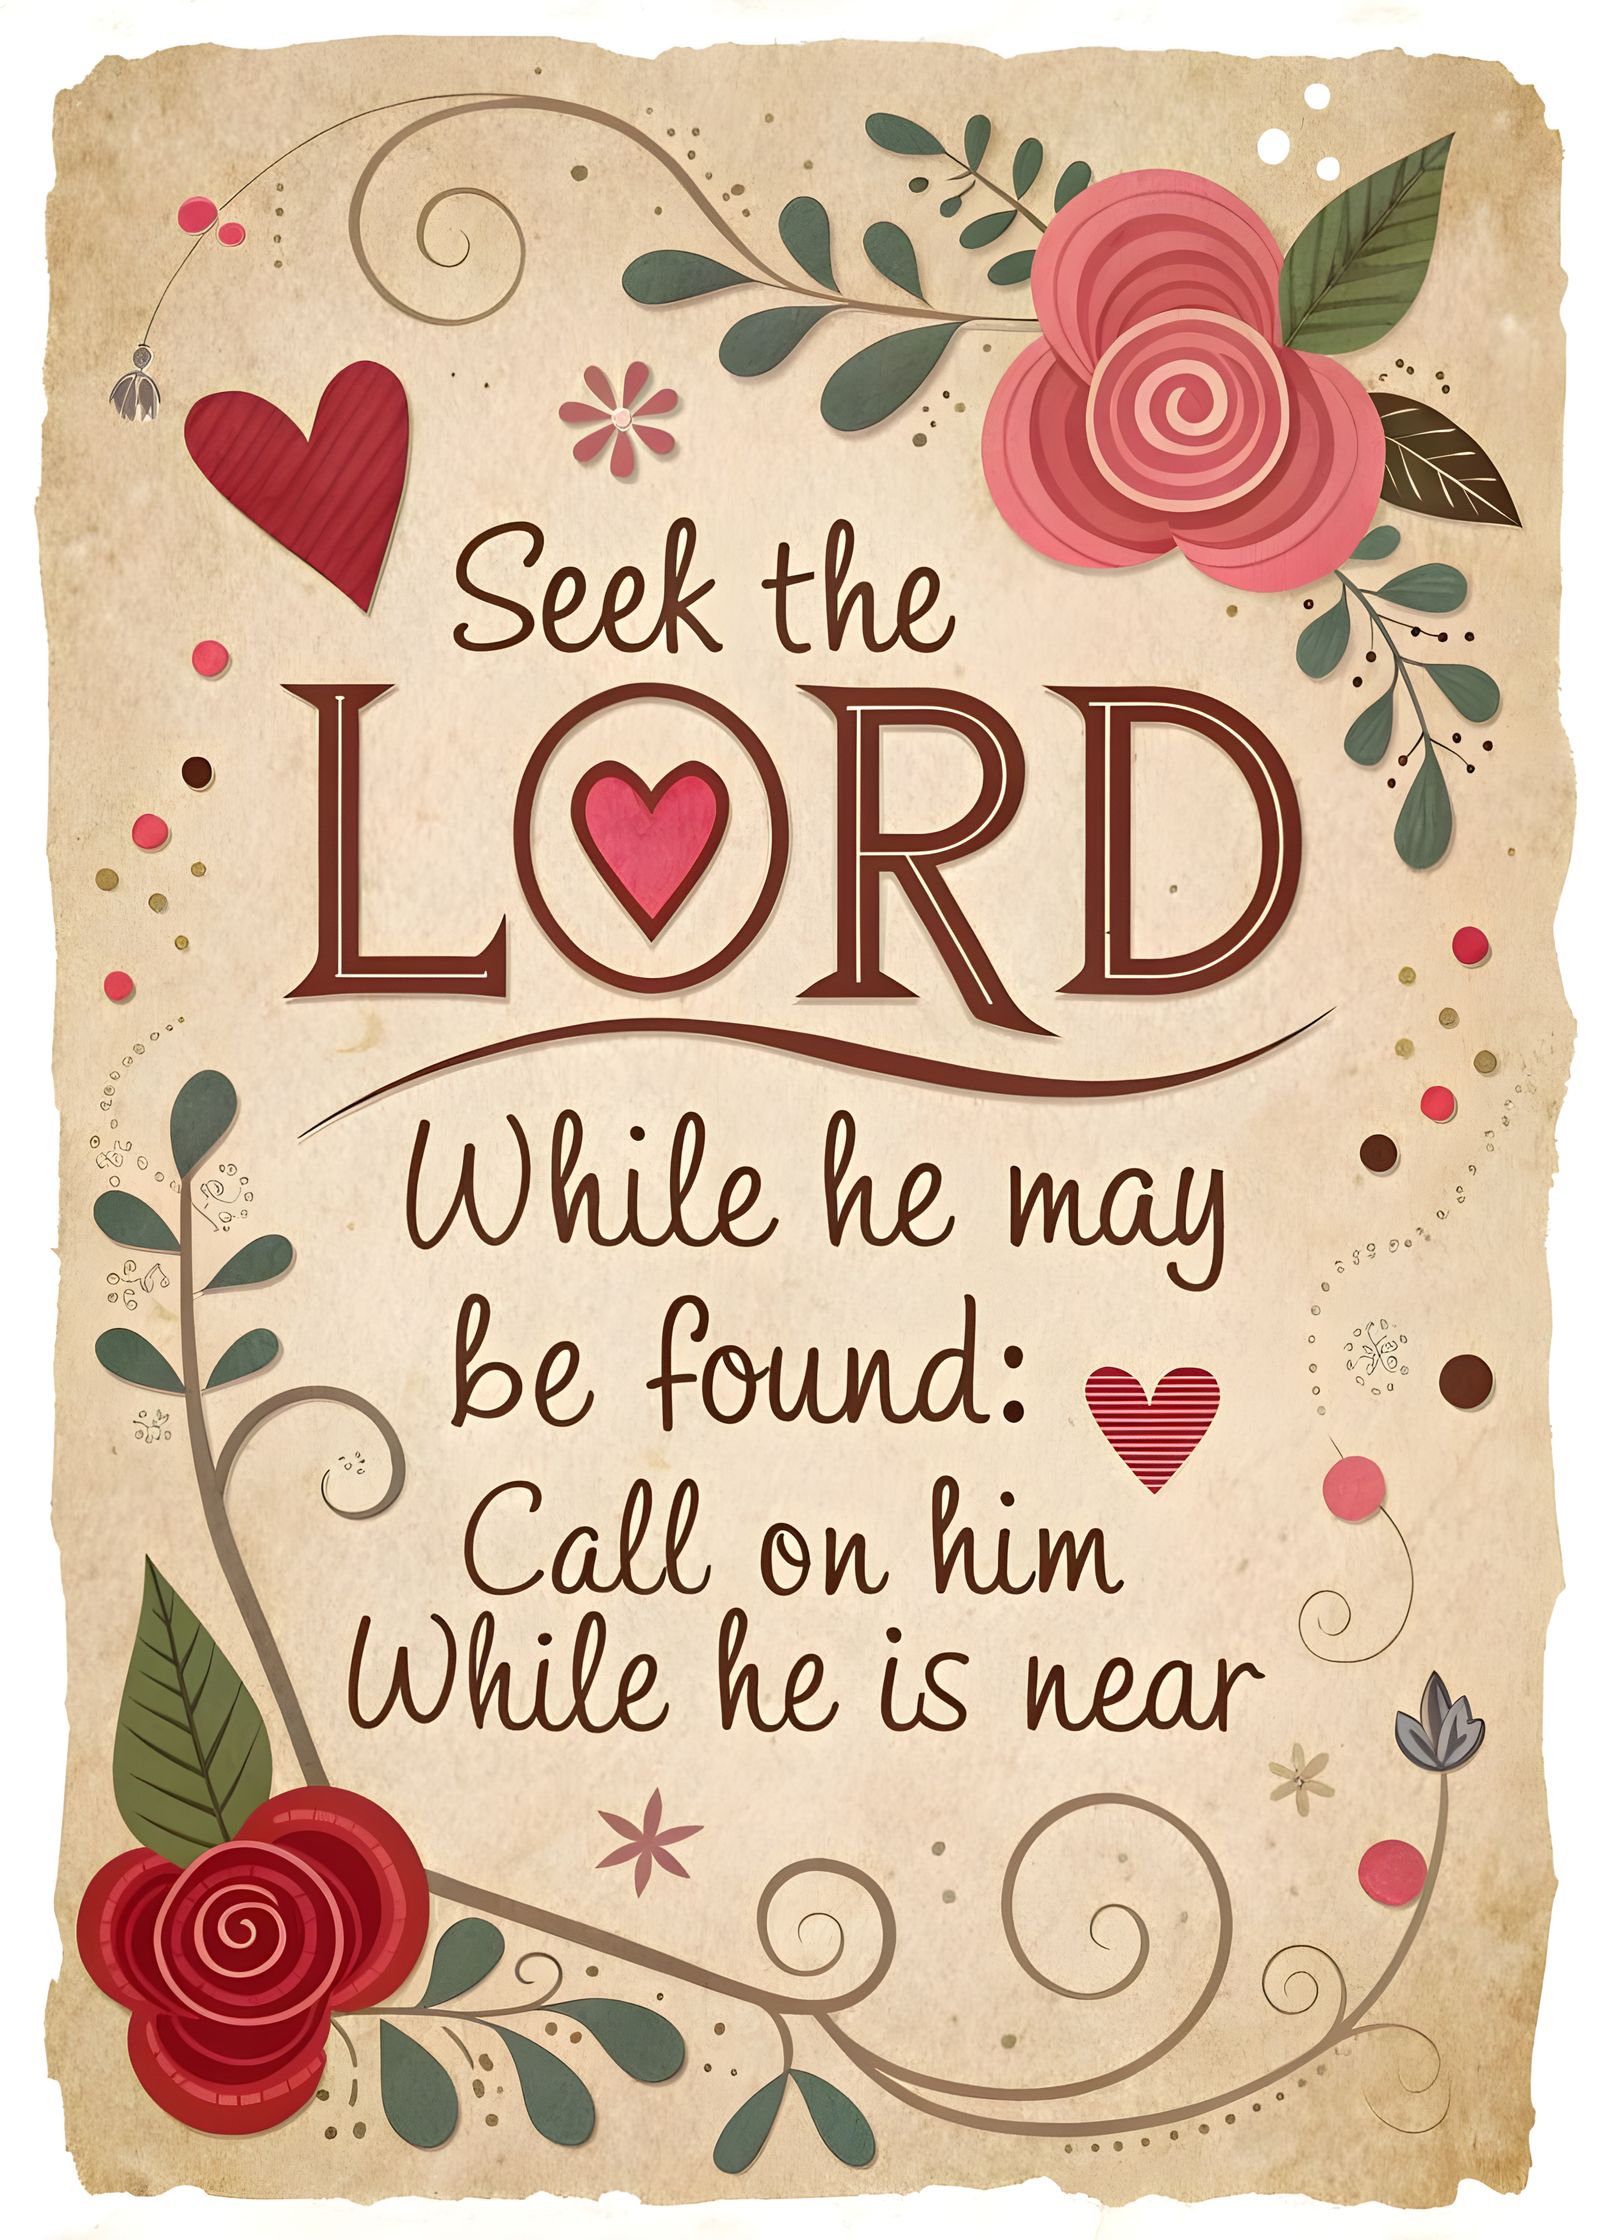 Seek the
LORD
While he may
be found:
Call on him
While he is near